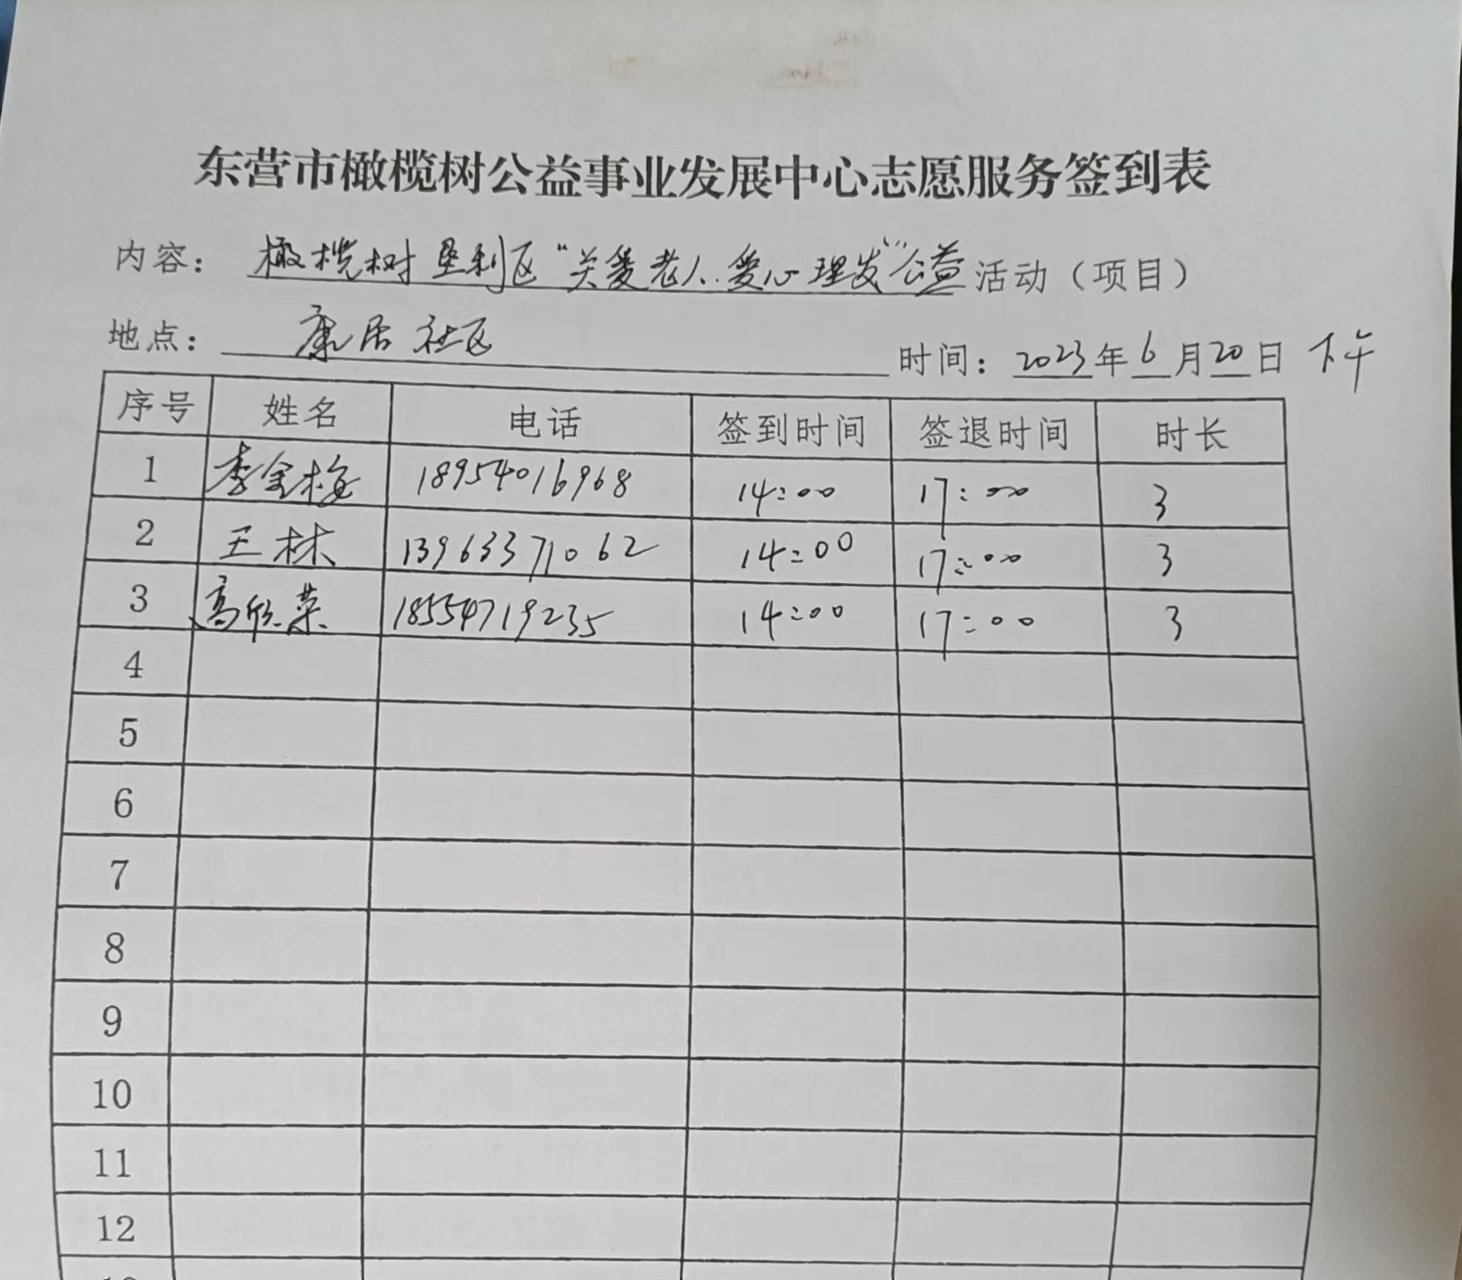 东营市橄榄树公益事业发展中心志愿服务签到表
内容: 橄榄树垦利区“关爱老人.爱心理发”公益 活动（项目）
地点: 康居社区 时间: 2023年6月20日 下午
序号 姓名 电话 签到时间 签退时间 时长
1 李金梅 18954016968 14:00 17:00 3
2 王林 13963371062 14:00 17:00 3
3 高欣荣 18554719235 14:00 17:00 3
4
5
6
7
8
9
10
11
12